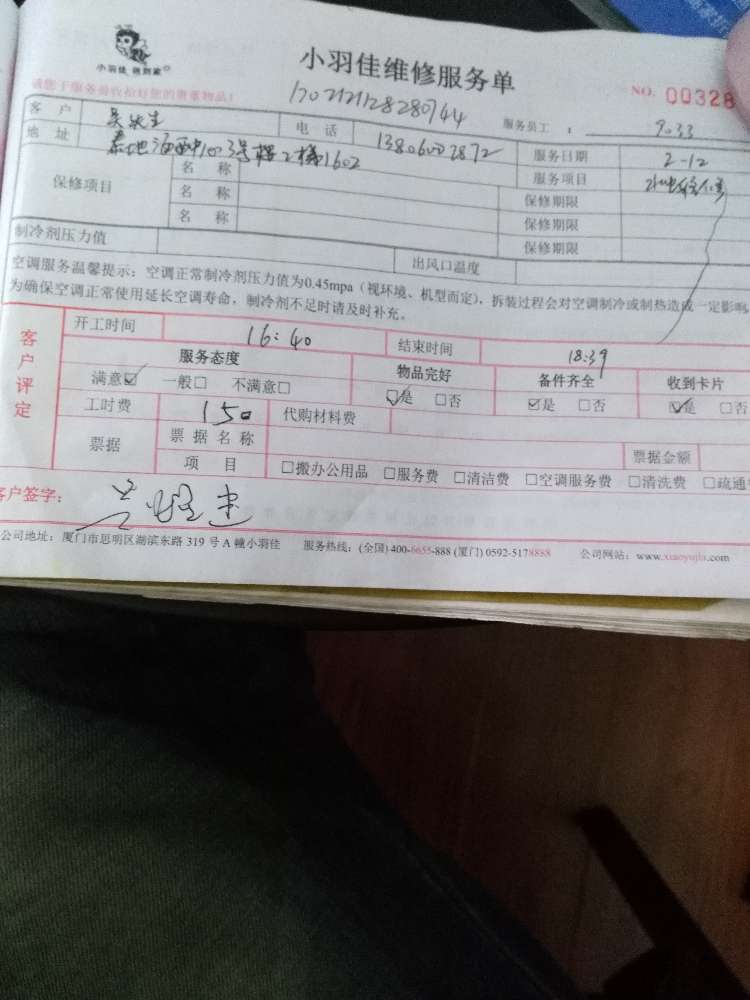 小羽佳 德到家
小羽佳维修服务单
请您于服务前收拾好您的贵重物品！
NO. 00328
服务员工： 9033
客户 电话
地址
服务日期 2-12
服务项目
保修项目 名称 保修期限
名称 保修期限
名称 保修期限
制冷剂压力值 出风口温度
空调服务温馨提示：空调正常制冷剂压力值为0.45mpa（视环境、机型而定），拆装过程会对空调制冷或制热造成一定影响，
为确保空调正常使用延长空调寿命，制冷剂不足时请及时补充。
客户评定
开工时间 16:40 结束时间 18:39
服务态度 物品完好 备件齐全 收到卡片
满意☑ 一般□ 不满意□ ☑是 □否 ☑是 □否 ☑是 □否
工时费 150 代购材料费
票据 票据名称 票据金额
项目 □搬办公用品 □服务费 □清洁费 □空调服务费 □清洗费 □疏通
客户签字：
公司地址：厦门市思明区湖滨东路 319 号 A 幢小羽佳 服务热线：(全国) 400-6655-888 (厦门) 0592-5178888 公司网站：www.xiaoyujia.com